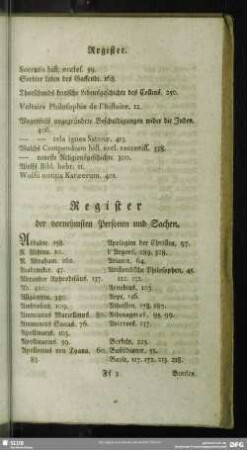 Register.
Socratis hist. eccles. 59.
Sorbier Leben des Gassendi. 268.
Thorschmids kritische Lebensgeschichte des Collins. 250.
Voltaire Philosophie de l'histoire. 12.
Wagenseils ungegründete Beschuldigungen wider die Juden.
406.
— — tela ignea Satanæ. 413.
Walchs Compendium hist. eccl. recentiss. 318.
— neueste Religionsgeschichte. 300.
Wolfs Bibl. hebr. 11.
Wolfii notitia Karæorum. 401.
Register
der vornehmsten Personen und Sachen.
R. Abraham. 160.
Alexander Aphrodisäus. 137.
Ambrosius. 109.
Ammianus Marcellinus. 87.
Ammonius Saccas. 76.
Apollinaris. 103.
Apollonius von Tyana. 60.
83.
Apologien der Christen. 57.
d'Argens. 289. 328.
Arianer. 64.
Aristotelische Philosophen. 45.
122. 132.
Arnobius. 103.
Arpe. 196.
Atheisten. 178. 187.
Athenagoras. 93. 99.
Averroes. 117.
Basilidianer. 55.
Bayle. 117. 172. 213. 228.
Ff 2